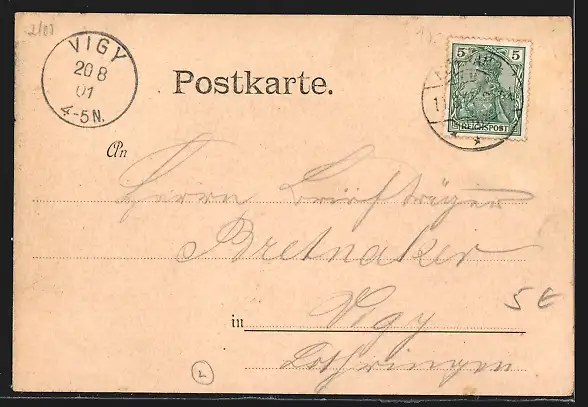 2/01
VIGY
20 8
01
4-5N.
Postkarte.
5 5
REICHSPOST
An
Herrn Briefträger
Bretnaker
5 €
in Vigy
Lothringen
2